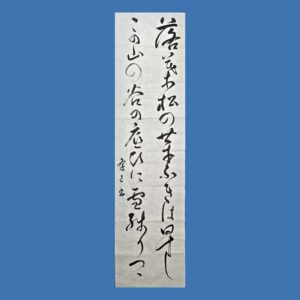 落葉松の芽ふきは早し
この山の谷の底ひに雪残りつゝ